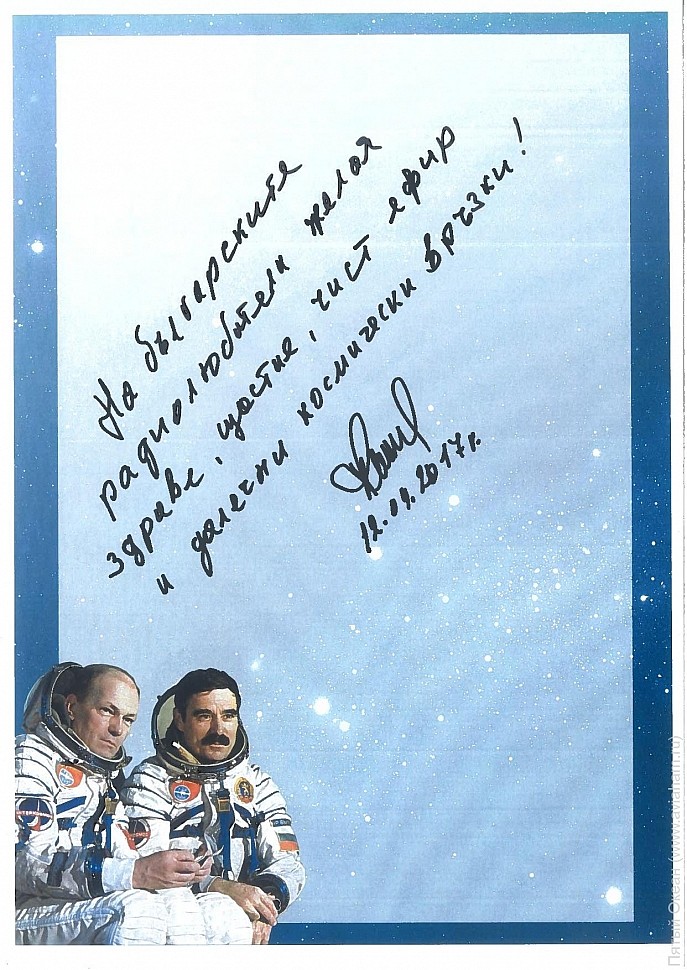 На българските
радиолюбители желая
здраве, щастие, чист ефир
и далечни космически връзки!
12.04.2017г.
Пятый Океан (www.aviaham.ru)